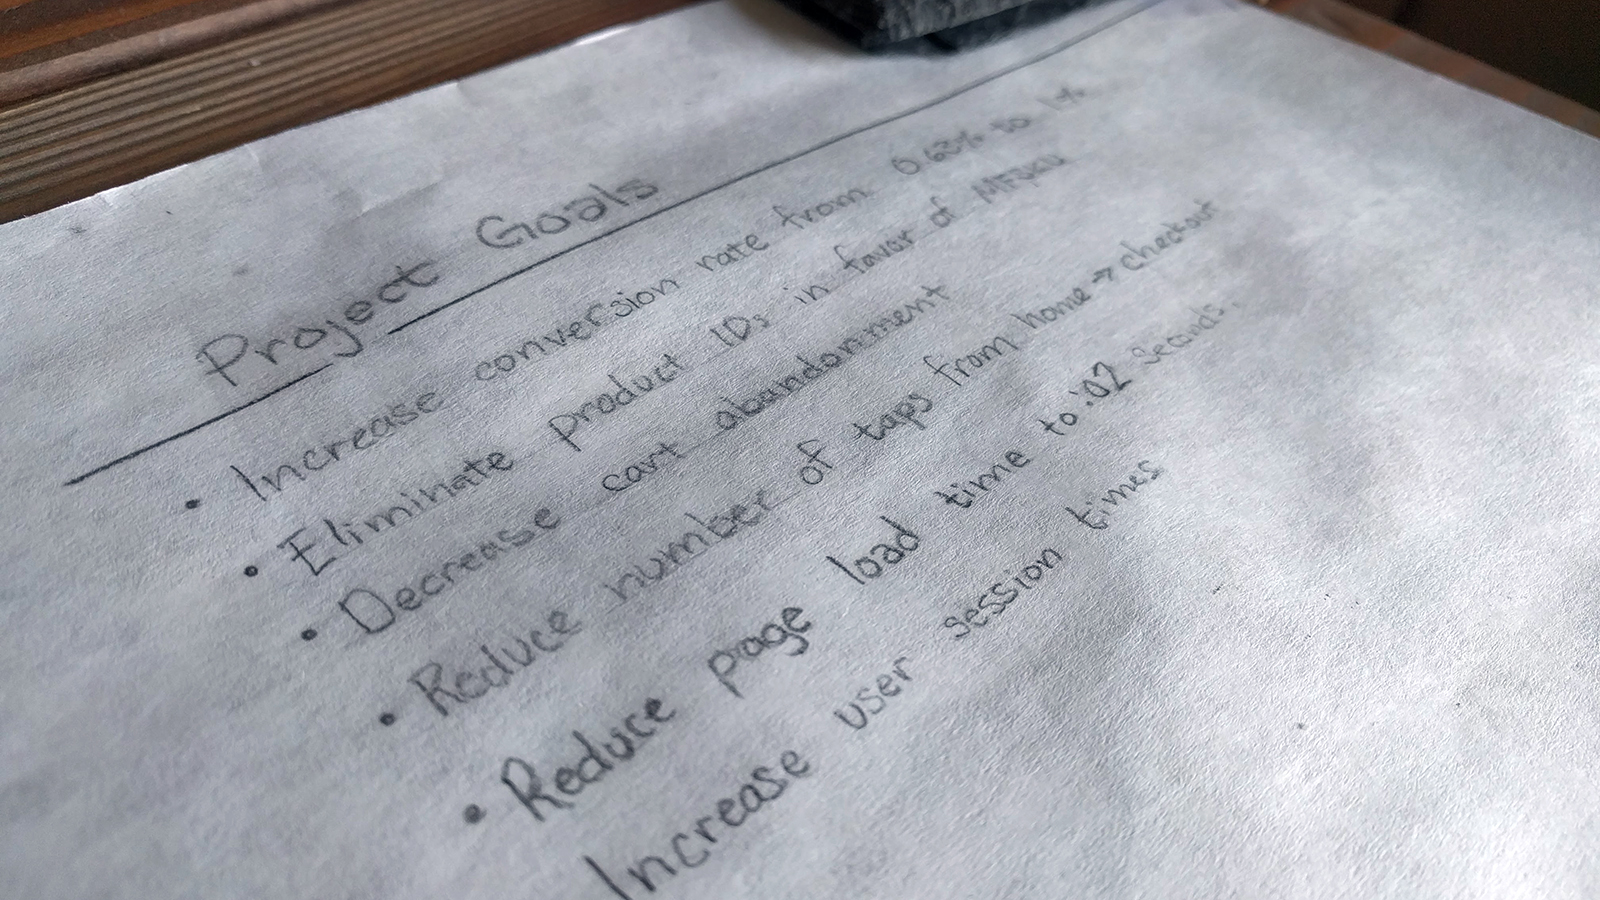 Project Goals
• Increase conversion rate from 0.63% to 1%
• Eliminate product IDs in favor of MFSKU
• Decrease cart abandonment
• Reduce number of taps from home → checkout
• Reduce page load time to :02 seconds.
Increase user session times